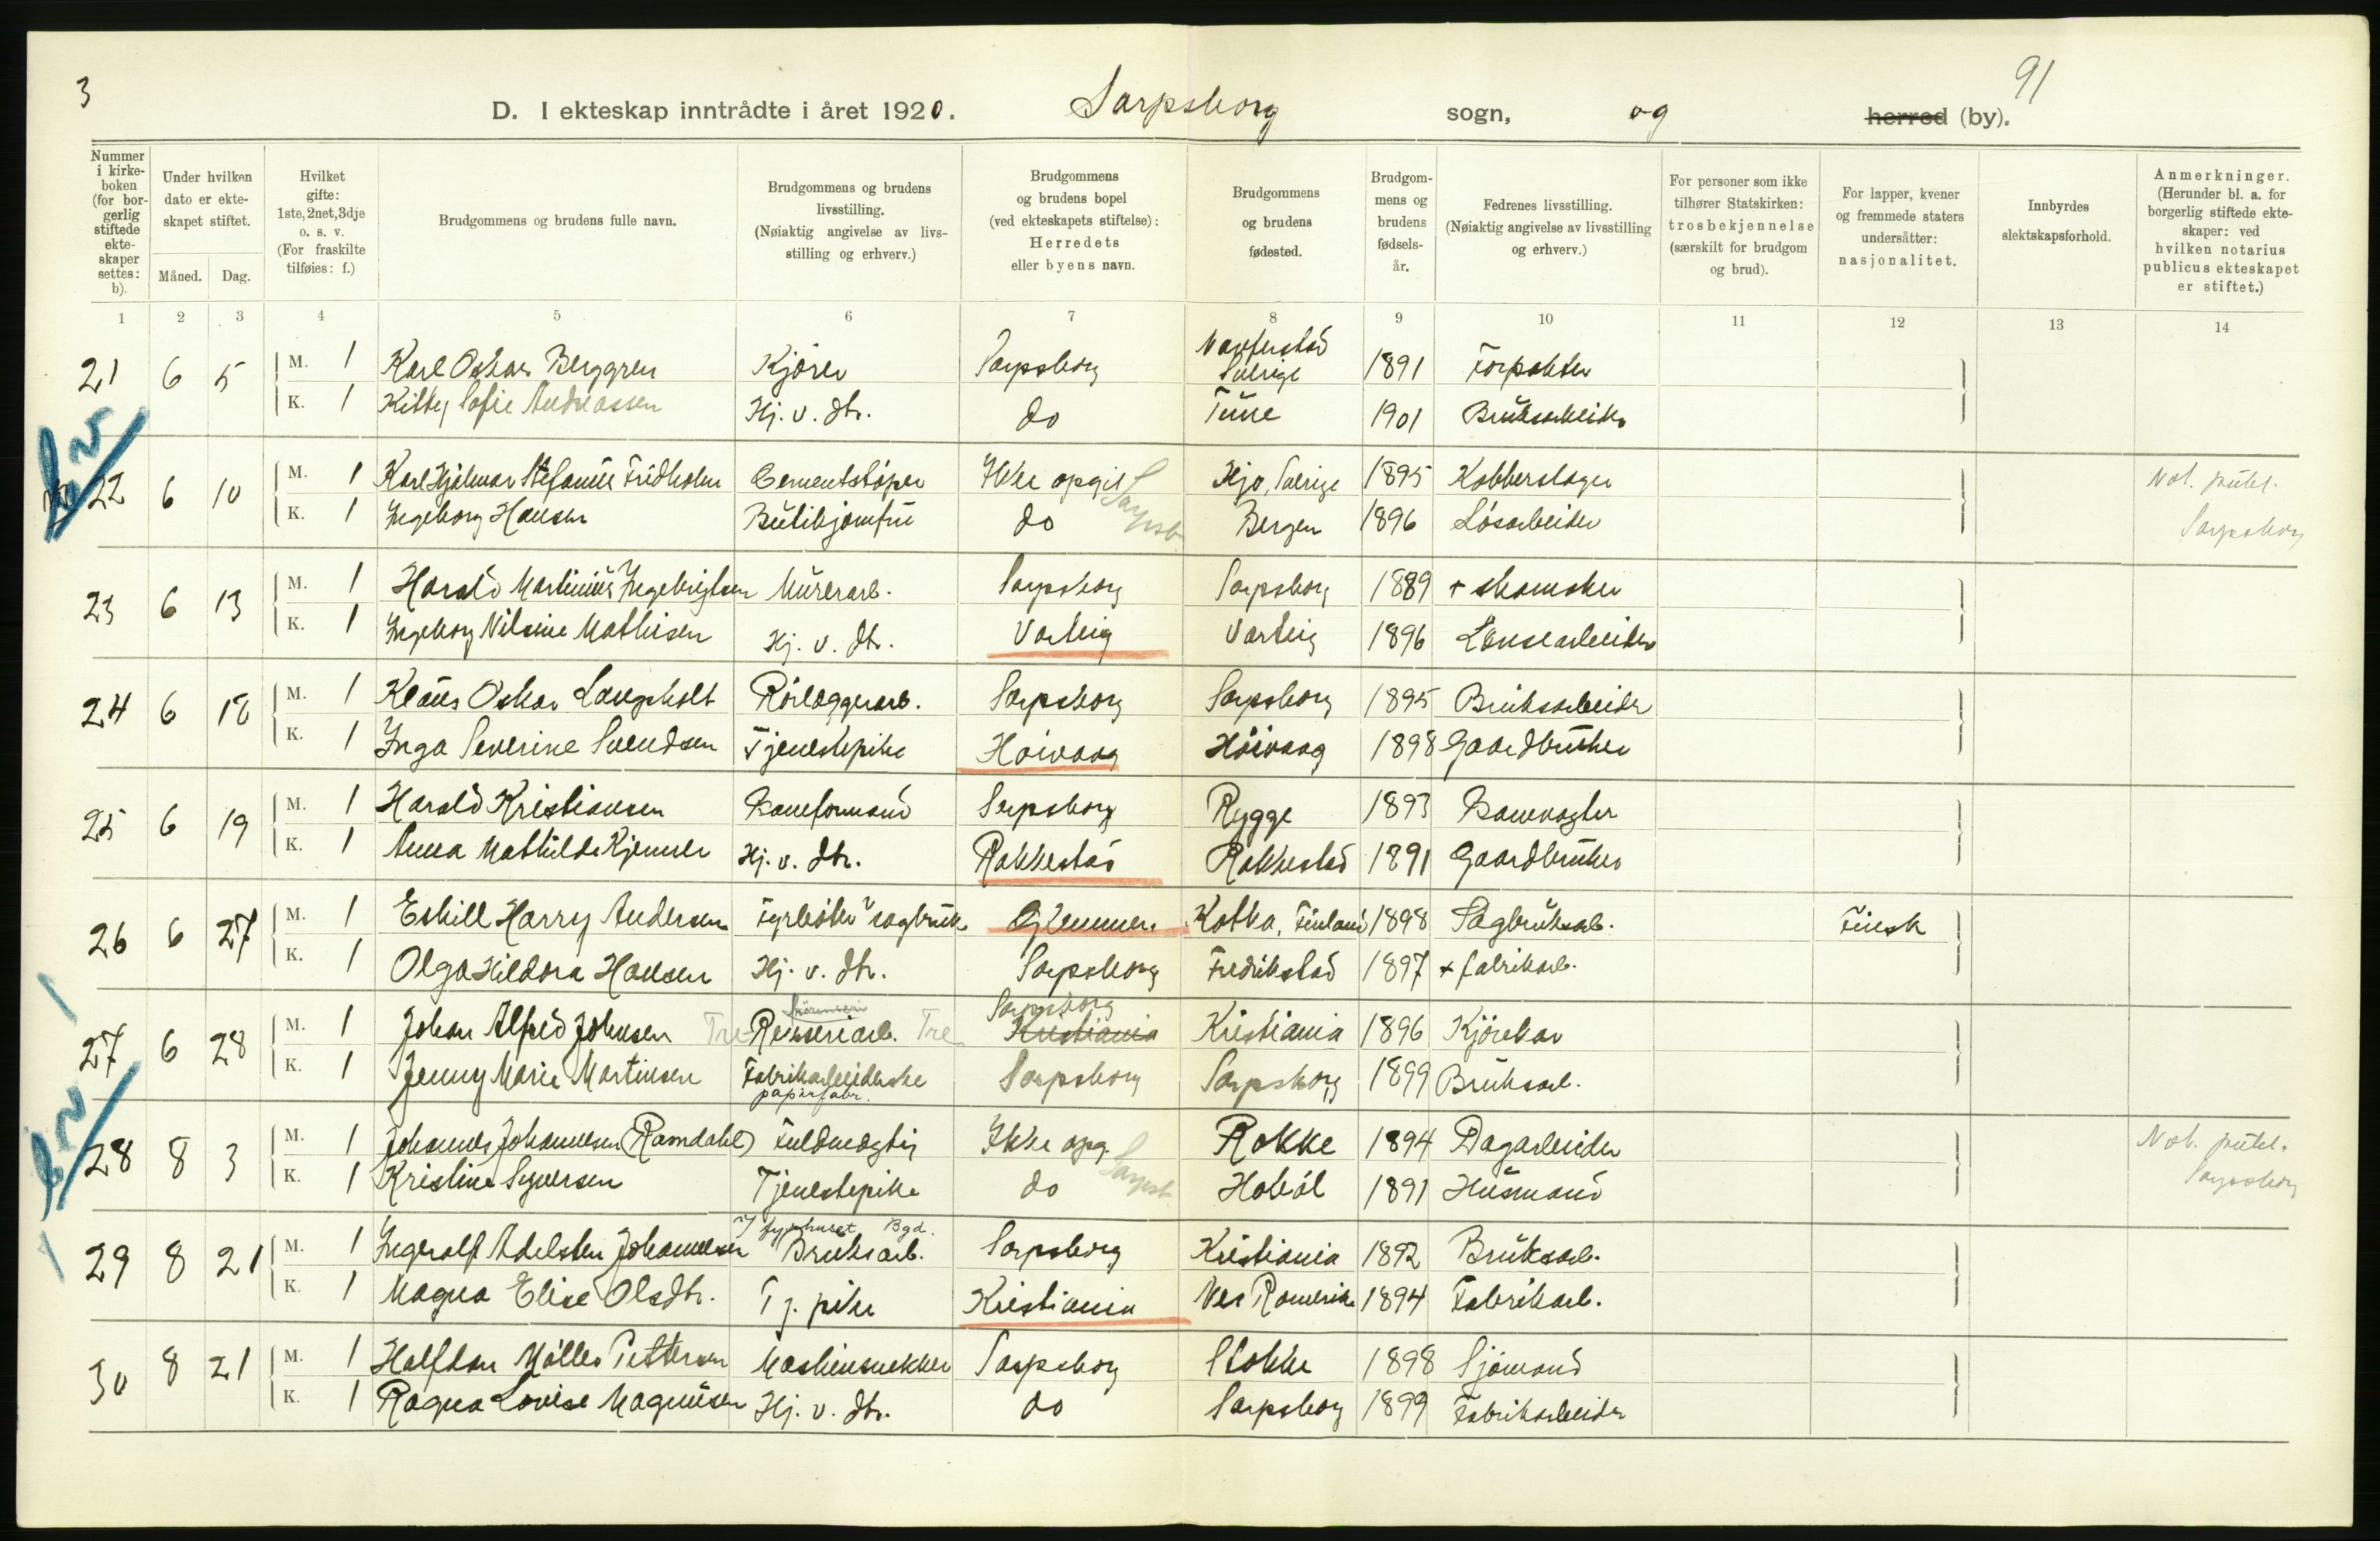 3
91
D. I ekteskap inntrådte i året 1920. Sarpsborg sogn, og herred (by).
Nummer i kirke-boken (for bor-gerlig stiftede ekte-skaper settes: b).
Under hvilken dato er ekte-skapet stiftet.
Måned. Dag.
Hvilket gifte: 1ste, 2net, 3dje o. s. v. (For fraskilte tilføies: f.)
Brudgommens og brudens fulle navn.
Brudgommens og brudens livsstilling. (Nøiaktig angivelse av livs-stilling og erhverv.)
Brudgommens og brudens bopel (ved ekteskapets stiftelse): Herredets eller byens navn.
Brudgommens og brudens fødested.
Brudgom-mens og brudens fødsels-år.
Fedrenes livsstilling. (Nøiaktig angivelse av livsstilling og erhverv.)
For personer som ikke tilhører Statskirken: trosbekjennelse (særskilt for brudgom og brud).
For lapper, kvener og fremmede staters undersåtter: nasjonalitet.
Innbyrdes slektskapsforhold.
Anmerkninger. (Herunder bl. a. for borgerlig stiftede ekte-skaper: ved hvilken notarius publicus ekteskapet er stiftet.)
1 2 3 4 5 6 7 8 9 10 11 12 13 14
21 6 5 M. 1 Karl Oskar Berggren Kjörer Sarpsborg Sverige 1891 Forpakter
K. 1 Kitty Sofie Andreassen Hj. v. dtr. do Tune 1901 Bruksarbeider
22 6 10 M. 1 Karl Hjalmar Stefanus Fridholm Cementstöper Ikke opgit Sarpsb Hjo, Sverige 1895 Kobberslager Not. publ.
K. 1 Ingeborg Hansen Butikjomfru do Bergen 1896 Lösarbeider Sarpsborg
23 6 13 M. 1 Harald Martinius Ingebrigtsen Murerarb. Sarpsborg Sarpsborg 1889 + skomaker
K. 1 Ingeborg Nilsine Mathisen Hj. v. dtr. Varteig Varteig 1896 Lensearbeider
24 6 18 M. 1 Klaus Oskar Langsholt Rörlæggerarb. Sarpsborg Sarpsborg 1895 Bruksarbeider
K. 1 Inga Severine Svendsen Tjenestepike Höivaag Höivaag 1898 Gaardbruker
25 6 19 M. 1 Harald Kristiansen Baneformand Sarpsborg Rygge 1893 Banevagter
K. 1 Anna Mathilde Kjenner Hj. v. dtr. Rakkestad Rakkestad 1891 Gaardbruker
26 6 27 M. 1 Eskill Harry Andersen Fyrböter v sagbruk Glemmen Kotka, Finland 1898 Sagbruksarb. Finsk
K. 1 Olga Hildora Hansen Hj. v. dtr. Sarpsborg Fredrikstad 1897 + fabrikarb.
Sarpsborg
27 6 28 M. 1 Johan Alfred Johnsen Tre- Renseriarb. Tre Kristiania Kristiania 1896 Kjörekar
K. 1 Jenny Marie Martinsen Fabrikarbeiderske Sarpsborg Sarpsborg 1899 Bruksarb.
papirfabr.
28 8 3 M. 1 Johannes Johannesen (Ramdahl) Fuldmægtig Ikke opg. Sarpsb Rokke 1894 Dagarbeider Not. publ.
K. 1 Kristine Syversen Tjenestepike do Hobøl 1891 Husmand Sarpsborg
I fyrhuset Bgd.
29 8 21 M. 1 Ingvalf Adelsten Johannesen Bruksarb. Sarpsborg Kristiania 1892 Bruksarb.
K. 1 Magna Elise Olsdtr. Tj. pike Kristiania Nes Romerike 1894 Fabrikarb.
30 8 21 M. 1 Halfdan Möller Pettersen Maskinsnekker Sarpsborg Stokke 1898 Sjömand
K. 1 Ragna Lovise Magnusen Hj. v. dtr. do Sarpsborg 1899 Fabrikarbeider